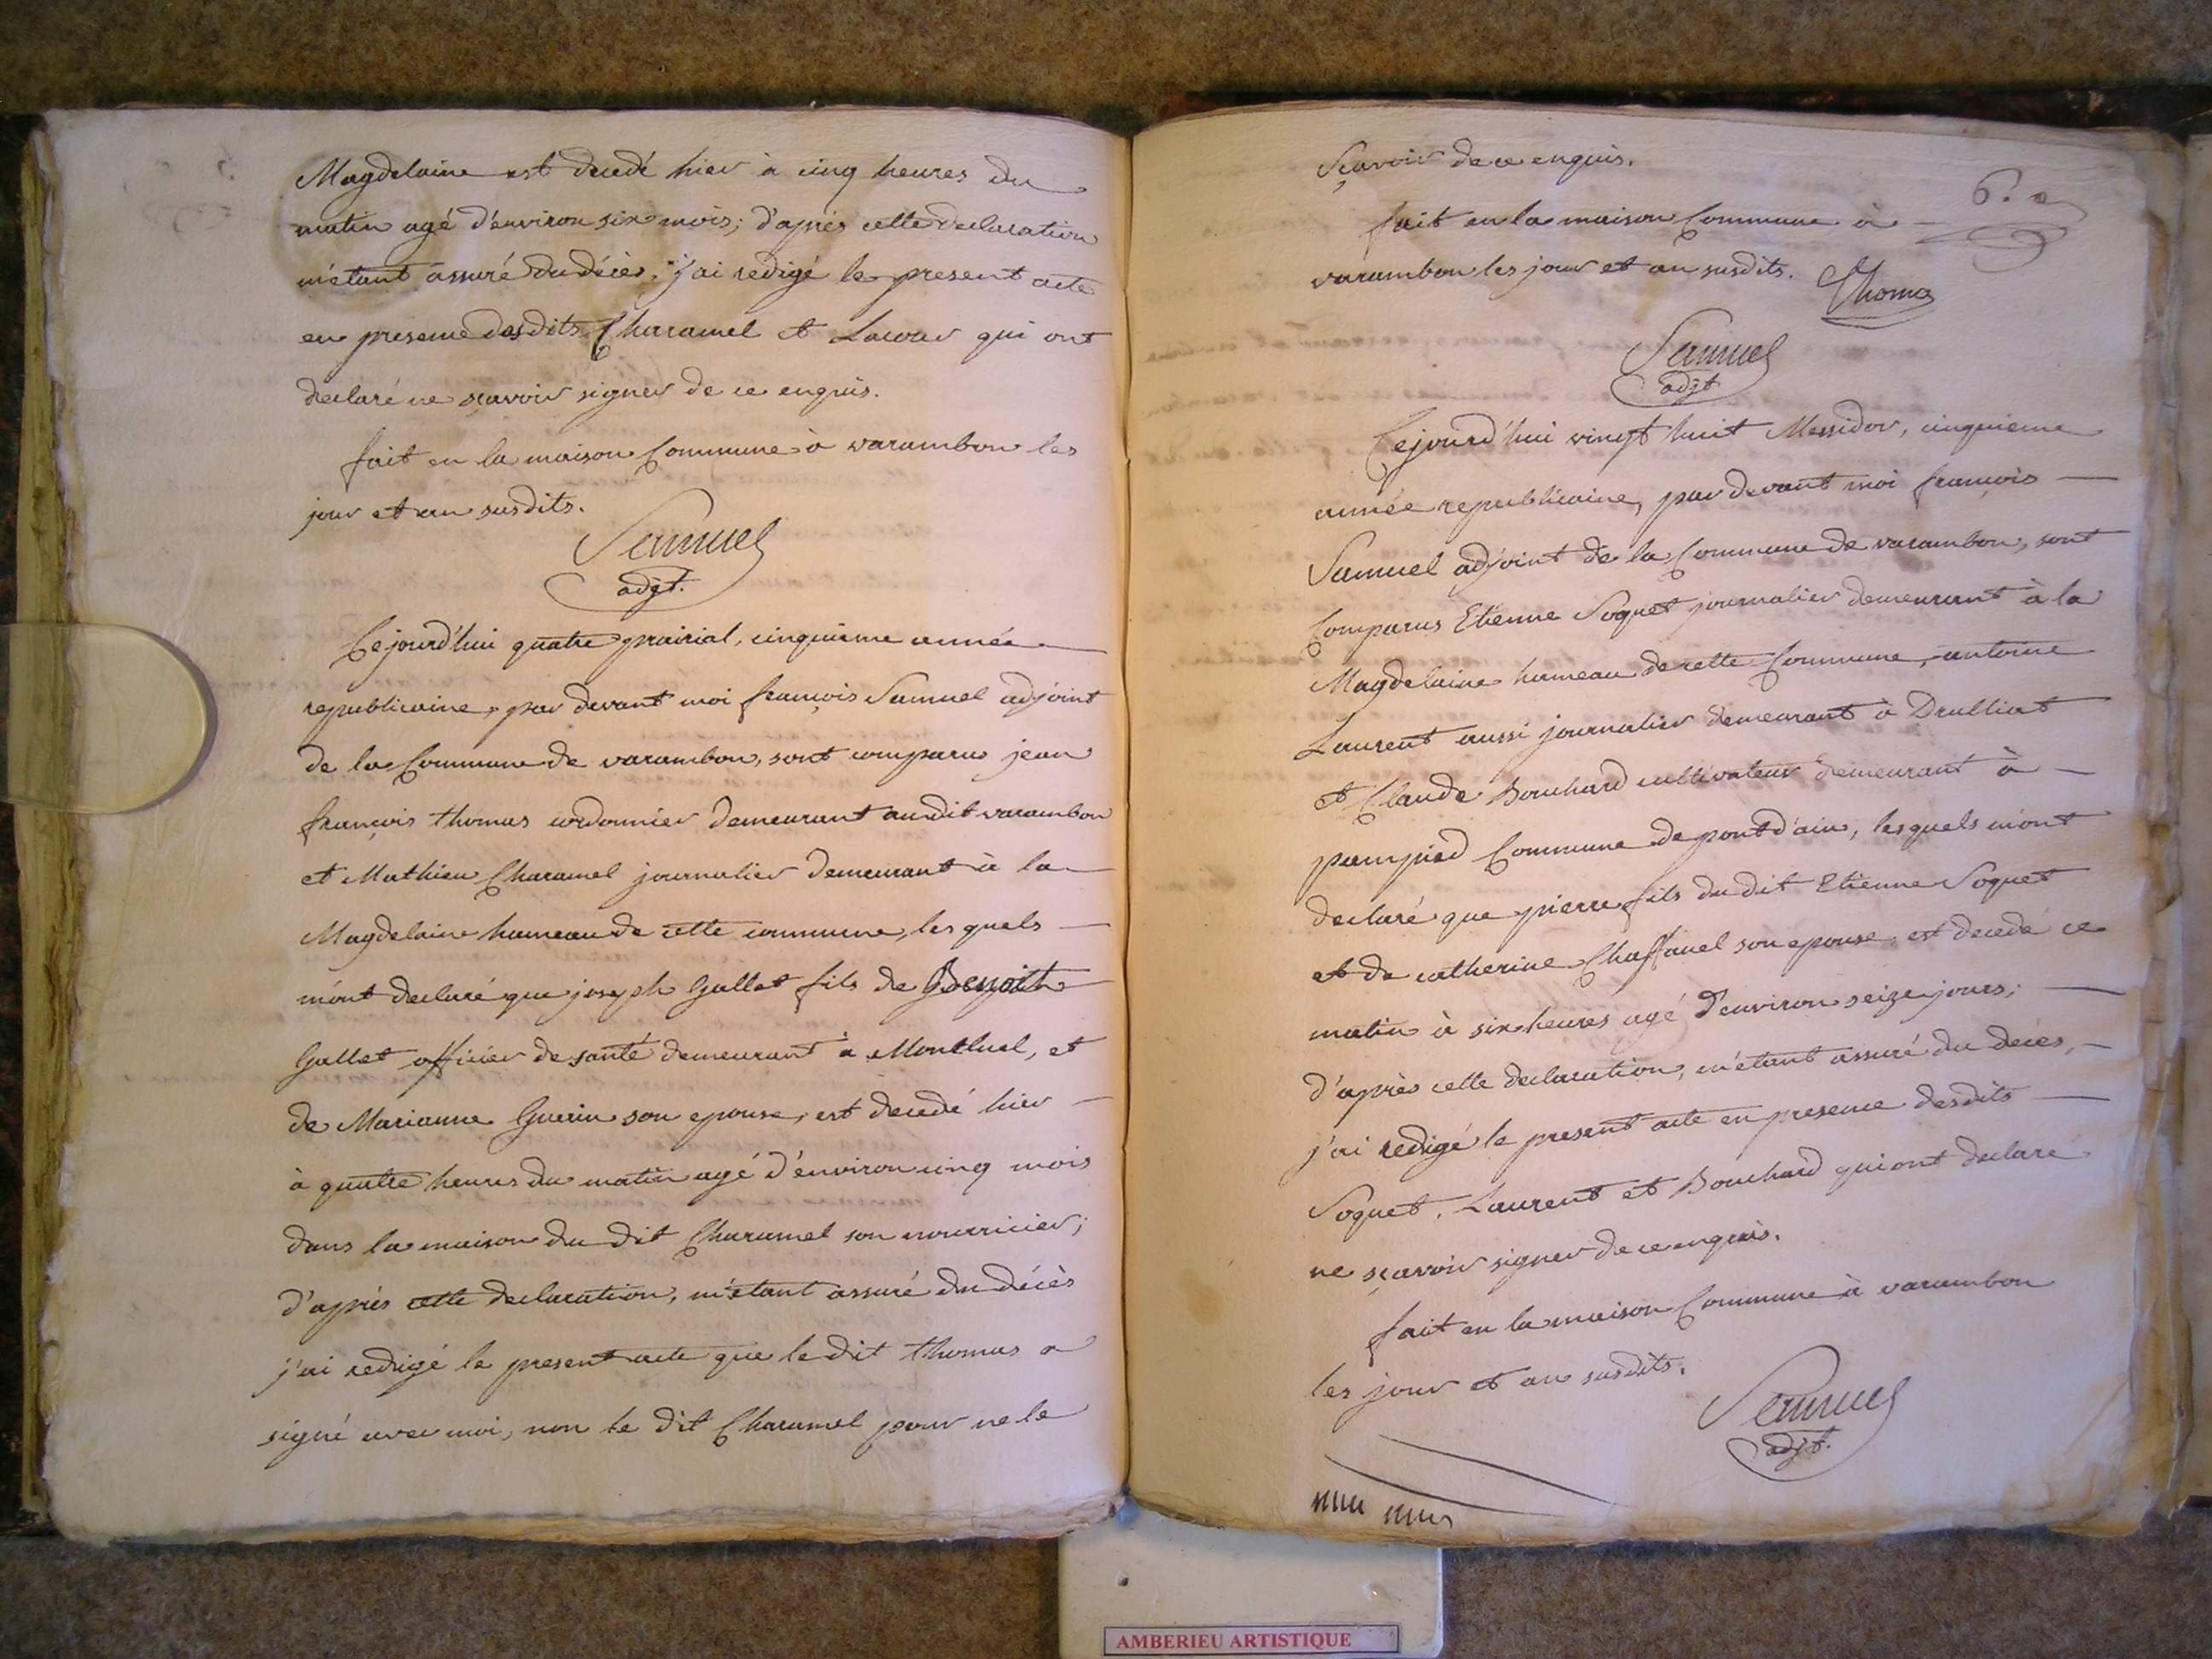 Magdelaine est decedé hier à cinq heures du
matin agé d'environ six mois; d'après cette declaration
m'étant assuré du décès, j'ai redigé le present acte
en presence desdits Charamel et Lacour qui ont
declaré ne sçavoir signer de ce enquis.
fait en la maison Commune à varambon les
jour et an susdits.
Samuel
adjt.
Cejourd'hui quatre prairial, cinquieme année
republicaine, par devant moi françois Samuel adjoint
de la Commune de varambon, sont comparus jean
françois thomas cordonnier demeurant audit varambon
et Mathieu Charamel journalier demeurant à la
Magdelaine hameau de cette commune, lesquels
m'ont declaré que joseph Gallet fils de Benoith
Gallet officier de santé demeurant à Montluel, et
de Marianne Guerin son epouse, est decedé hier
à quatre heures du matin agé d'environ cinq mois
dans la maison du dit Charamel son nourricier;
d'après cette declaration, m'étant assuré du décès
j'ai redigé le present acte que le dit thomas a
signé avec moi, non le dit Charamel pour ne le
Sçavoir de ce enquis.
6.
fait en la maison Commune à
varambon les jour et an susdits.
Thomas
Samuel
adjt
Cejourd'hui vingt huit Messidor, cinquieme
année republicaine, par devant moi françois
Samuel adjoint de la Commune de varambon, sont
Comparus Etienne Soquet journalier demeurant à la
Magdelaine hameau de cette Commune, antoine
Laurent aussi journalier demeurant à Druilliat
et Claude Bouchard cultivateur demeurant à
pampied Commune de pont d'ain, lesquels m'ont
declaré que pierre fils du dit Etienne Soquet
et de catherine Chaffanel son epouse, est decedé ce
matin à six heures agé d'environ seize jours;
d'après cette declaration, m'étant assuré du décès,
j'ai redigé le present acte en presence desdits
Soquet, Laurent et Bouchard qui ont declaré
ne sçavoir signer de ce enquis.
fait en la maison Commune à varambon
les jour et an susdits.
Samuel
adjt.
AMBERIEU ARTISTIQUE